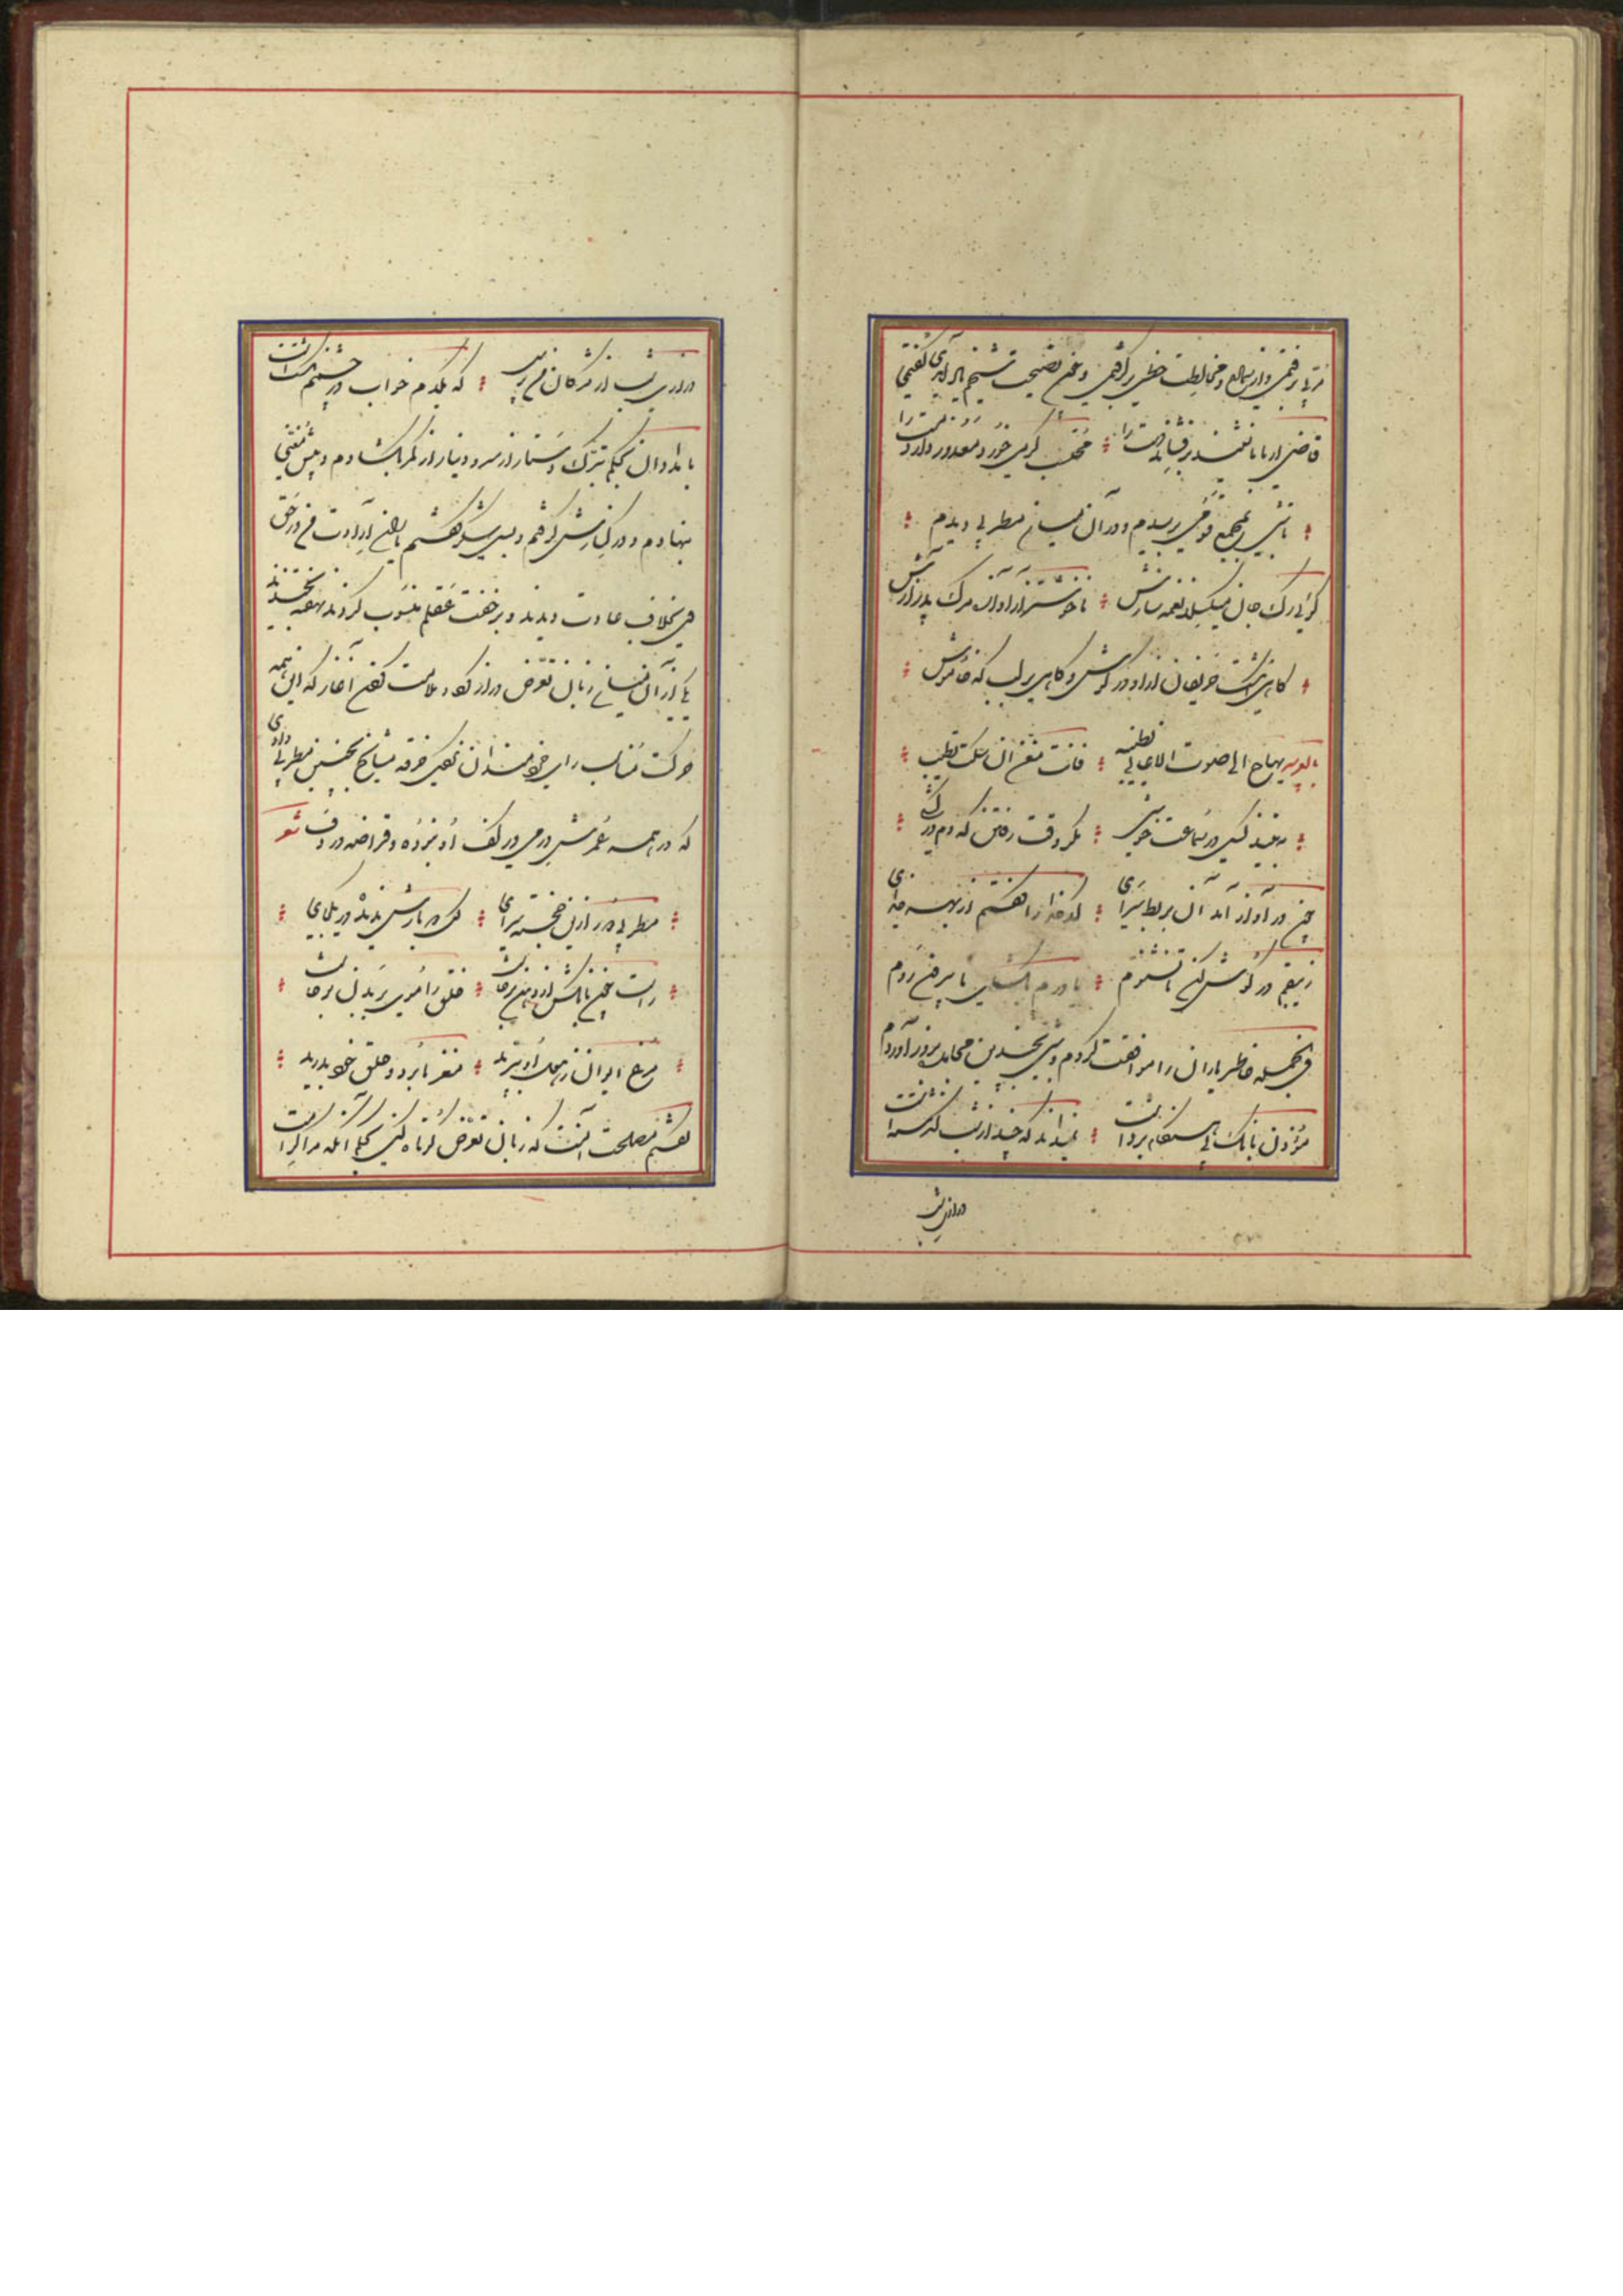 مربی برفتمی و از سماع و مخالطت حظی برگرفتمی و چون نصیحت شیخم یاد آمدی گفتمی
قاضی ار با ما نشیند برفشاند دست را محتسب گر می خورد معذور دارد مست را
تا شبی بمجمع قومی برسیدم و در آن میان مطربی دیدم
گوئی رگ جان میگسلد نغمه سازش ناخوشتر از آوازه مرگ پدر آوازش
گاهی انگشت حریفان ازو در گوش و گاهی بر لب که خاموش
نهاج الی صوت الاغانی لطیبه فانت مغن ان سکت نطیب
نه بیند کسی در سماعت خوشی مگر وقت رفتن که دم درکشی
چون در آواز آمد آن بربط سرای کدخدا را گفتم از بهر خدای
زیبقم در گوش کن تا نشنوم یا درم بگشای تا بیرون روم
فی الجمله خاطر یاران را موافقت کردم و شبی بچندین مجاهده بروز آوردم
مؤذن بانگ بی هنگام برداشت نمیداند که چند از شب گذشتست
درازی شب
درازی شب از مژگان من پرس که یکدم خواب در چشمم نگشتست
بامدادان بحکم تبرک دستار از سر و دینار از کمر بگشادم و پیش مغنی
بنهادم و در کنارش گرفتم و بسی شکر گفتم یاران ارادت من در حق
وی بخلاف عادت دیدند و بر خفت عقلم منسوب کردند و نهفته بخندیدند
یکی از آن میان زبان تعرض دراز کرد و ملامت کردن آغاز که این همه
حرکت مناسب رای خردمندان نکردی خرقه مشایخ بچنین مطربی دادی
که در همه عمرش درمی در کف او نبوده و قراضه در دف شعر
مطربی دور ازین خجسته سرای کس دو بارش ندیده در یکجای
راست چون بانگش از دهن برخاست خلق را موی بر بدن برخاست
مرغ ایوان ز هول او بپرید مغز ما برد و حلق خود بدرید
گفتم مصلحت آنست که زبان تعرض کوتاه کنی بحکم آنکه مرا کرامت